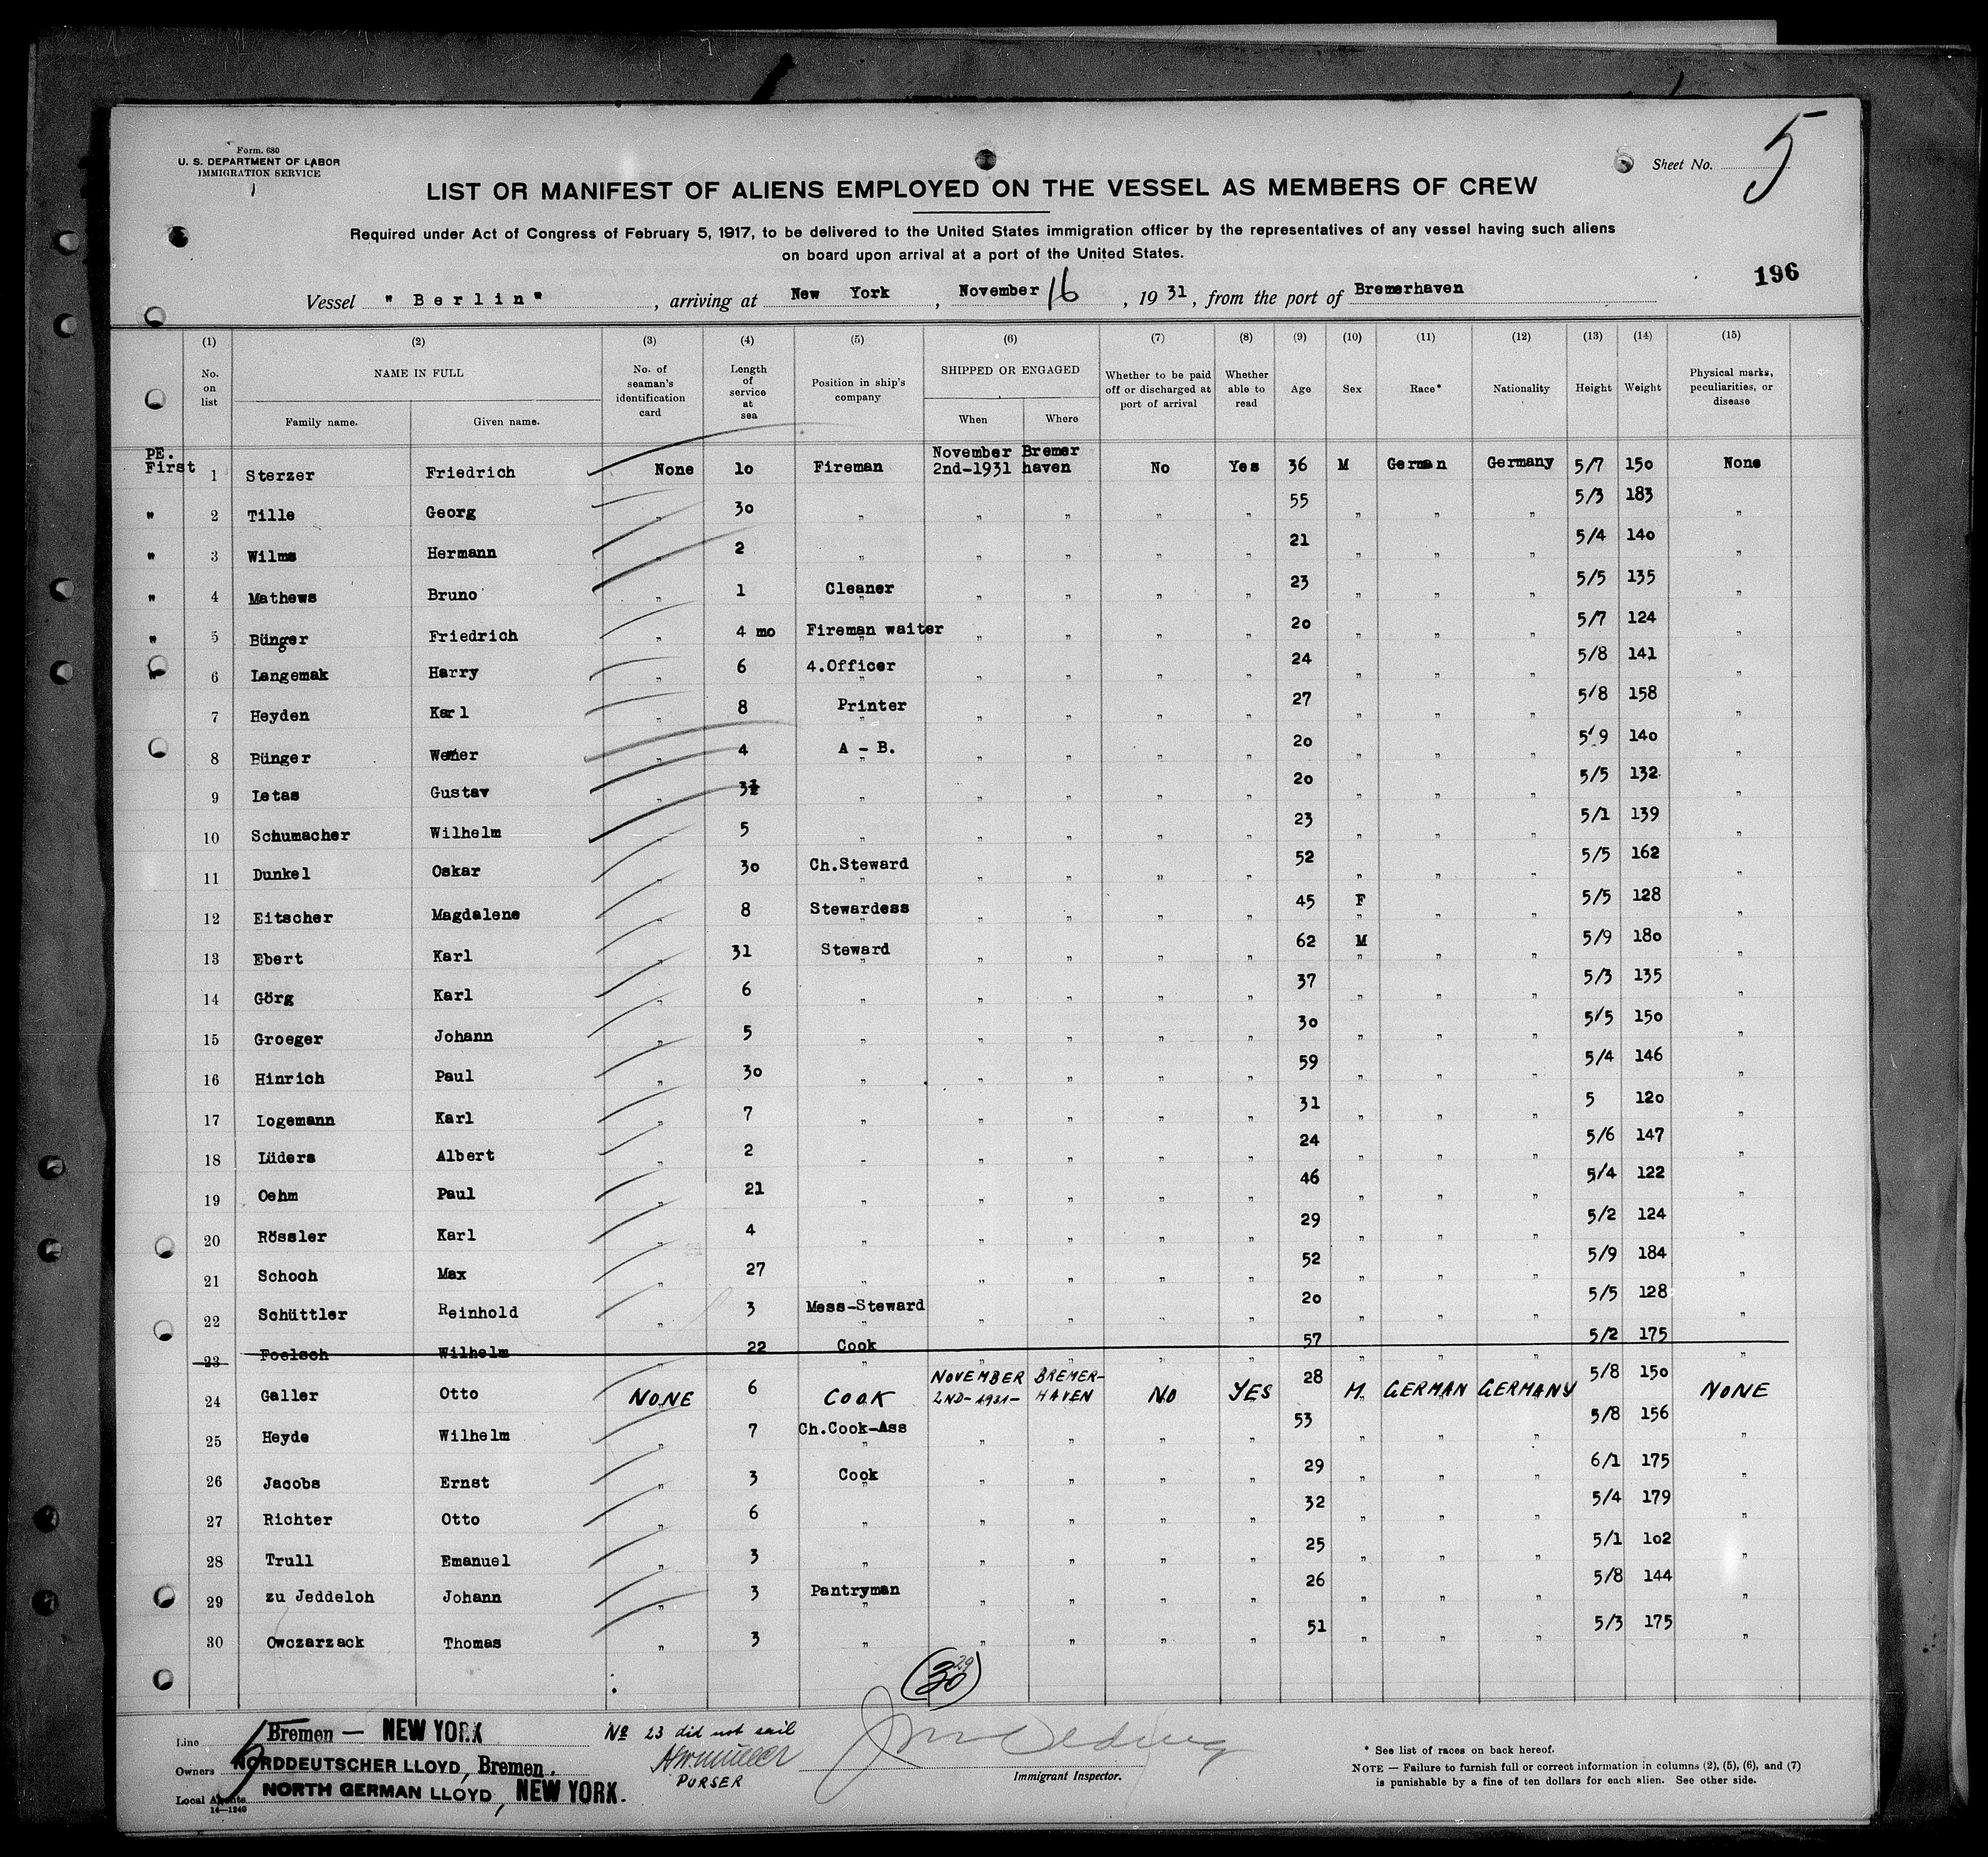 Form. 680
U. S. DEPARTMENT OF LABOR
IMMIGRATION SERVICE
Sheet No. 5
LIST OR MANIFEST OF ALIENS EMPLOYED ON THE VESSEL AS MEMBERS OF CREW
Required under Act of Congress of February 5, 1917, to be delivered to the United States immigration officer by the representatives of any vessel having such aliens
on board upon arrival at a port of the United States.
196
Vessel "Berlin", arriving at New York, November 16, 1931, from the port of Bremerhaven
(1) (2) (3) (4) (5) (6) (7) (8) (9) (10) (11) (12) (13) (14) (15)
No. on list NAME IN FULL Family name. Given name. No. of seaman's identification card Length of service at sea Position in ship's company SHIPPED OR ENGAGED When Where Whether to be paid off or discharged at port of arrival Whether able to read Age Sex Race* Nationality Height Weight Physical marks, peculiarities, or disease
PE. First 1 Sterzer Friedrich None 10 Fireman November 2nd-1931 Bremerhaven No Yes 36 M German Germany 5/7 150 None
" 2 Tille Georg " 30 " " " " " 55 " " " 5/3 183 "
" 3 Wilms Hermann " 2 " " " " " 21 " " " 5/4 140 "
" 4 Mathews Bruno " 1 Cleaner " " " " 23 " " " 5/5 135 "
" 5 Bünger Friedrich " 4 mo Fireman waiter " " " " 20 " " " 5/7 124 "
" 6 Langemak Harry " 6 4.Officer " " " " 24 " " " 5/8 141 "
7 Heyden Karl " 8 Printer " " " " 27 " " " 5/8 158 "
8 Bünger Werner " 4 A - B. " " " " 20 " " " 5/9 140 "
9 Ietas Gustav " 3½ " " " " " 20 " " " 5/5 132 "
10 Schumacher Wilhelm " 5 " " " " " 23 " " " 5/1 139 "
11 Dunkel Oskar " 30 Ch.Steward " " " " 52 " " " 5/5 162 "
12 Eitscher Magdalene " 8 Stewardess " " " " 45 F " " 5/5 128 "
13 Ebert Karl " 31 Steward " " " " 62 M " " 5/9 180 "
14 Görg Karl " 6 " " " " " 37 " " " 5/3 135 "
15 Groeger Johann " 5 " " " " " 30 " " " 5/5 150 "
16 Hinrich Paul " 30 " " " " " 59 " " " 5/4 146 "
17 Logemann Karl " 7 " " " " " 31 " " " 5 120 "
18 Lüders Albert " 2 " " " " " 24 " " " 5/6 147 "
19 Oehm Paul " 21 " " " " " 46 " " " 5/4 122 "
20 Rössler Karl " 4 " " " " " 29 " " " 5/2 124 "
21 Schoch Max " 27 " " " " " 52 " " " 5/9 184 "
22 Schüttler Reinhold " 3 Mess-Steward " " " " 20 " " " 5/5 128 "
23 Foelsch Wilhelm " 22 Cook " " " " 57 " " " 5/2 175 "
24 Galler Otto NONE 6 COOK NOVEMBER 2ND-1931- BREMER-HAVEN NO YES 28 M. GERMAN GERMANY 5/8 150 NONE
25 Heyde Wilhelm " 7 Ch.Cook-Ass " " " " 53 " " " 5/8 156 "
26 Jacobs Ernst " 3 Cook " " " " 29 " " " 6/1 175 "
27 Richter Otto " 6 " " " " " 32 " " " 5/4 179 "
28 Trull Emanuel " 3 " " " " " 25 " " " 5/1 102 "
29 zu Jeddeloh Johann " 3 Pantryman " " " " 26 " " " 5/8 144 "
30 Owczarzack Thomas " 3 " " " " " 51 " " " 5/3 175 "
30 29
Line Bremen — NEW YORK
Owners NORDDEUTSCHER LLOYD, Bremen.
Local Agents NORTH GERMAN LLOYD, NEW YORK.
14—1240
5
No 23 did not sail
PURSER
Immigrant Inspector.
* See list of races on back hereof.
NOTE — Failure to furnish full or correct information in columns (2), (5), (6), and (7)
is punishable by a fine of ten dollars for each alien. See other side.